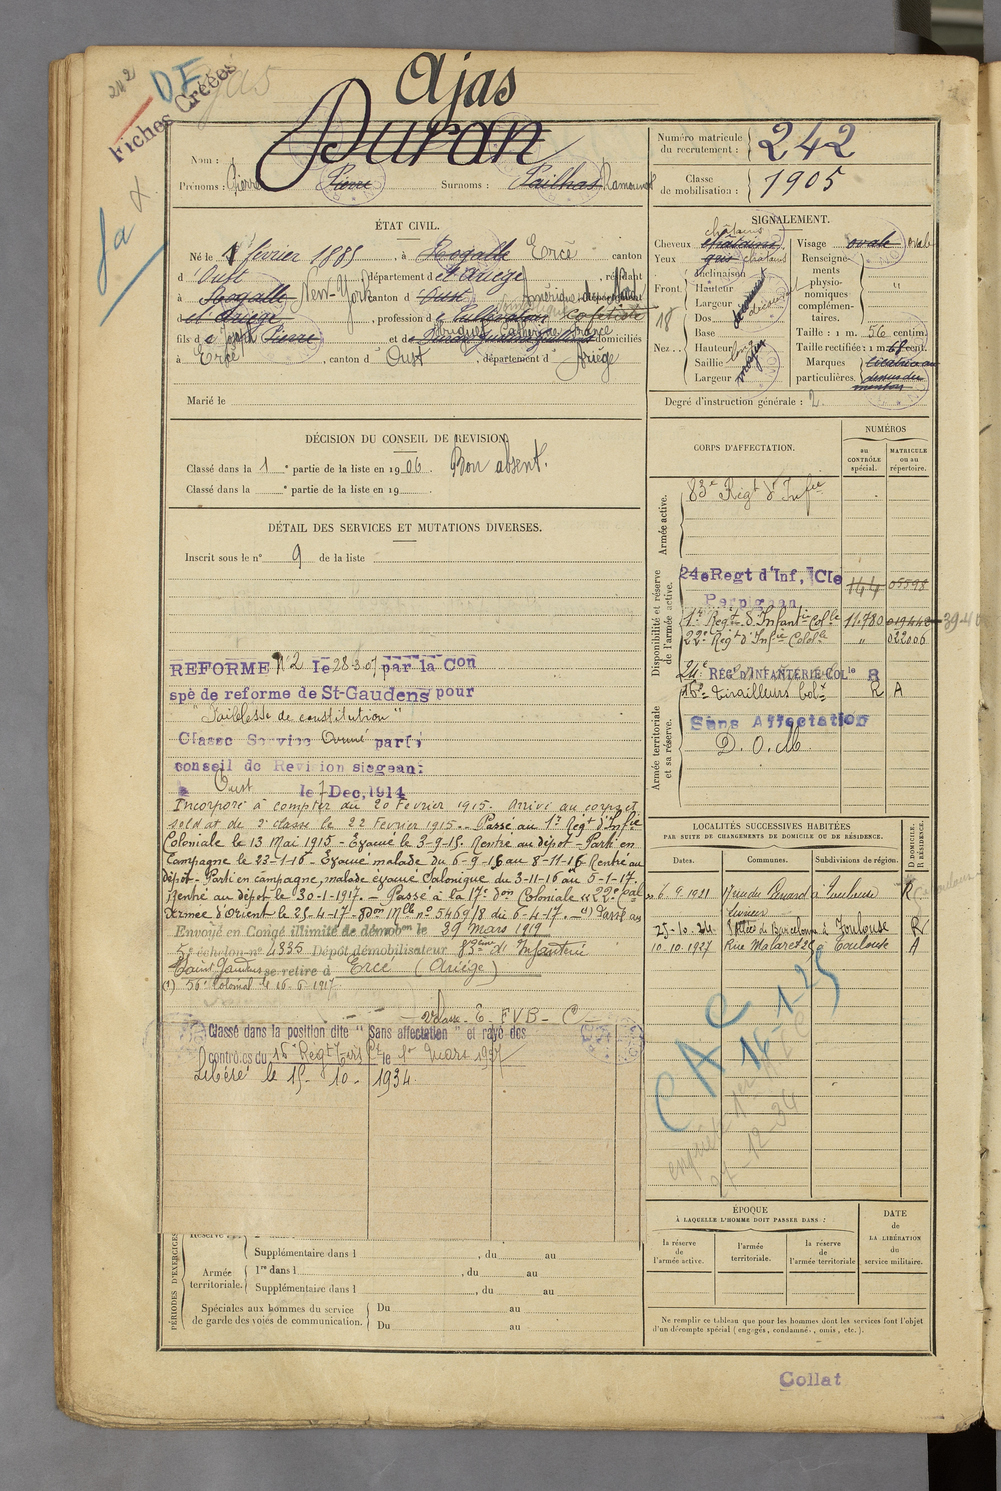 242
DF
Fiches Créées
Ajas
Duran
Nom :
Prénoms : Pierre Pierre Surnoms : Sailhas Ramounet
Numéro matricule du recrutement : 242
Classe de mobilisation : 1905
ÉTAT CIVIL.
Né le 1 février 1885, à Rogalle Ercé canton
d'Oust, département d'Ariège, résidant
à Rogalle New-York canton d'Oust Amérique du Nord département
d'Ariège, profession de Cultivateur
fils de Pierre et de domiciliés
à Ercé, canton d'Oust, département d'Ariège
Marié le
SIGNALEMENT.
châtains
Cheveux châtains
Yeux gris châtains
Inclinaison
Front : Hauteur
Largeur
Dos
Base
Nez : Hauteur
Saillie
Largeur
Visage ovale ovale
Renseignements physionomiques complémentaires.
Taille : 1 m. 56 centim.
Taille rectifiée : 1 m. 68 cent.
Marques particulières. cicatrice au dessus du menton
Degré d'instruction générale : 2
DÉCISION DU CONSEIL DE REVISION
Classé dans la 1re partie de la liste en 1906. Bon absent.
Classé dans la e partie de la liste en 19
DÉTAIL DES SERVICES ET MUTATIONS DIVERSES.
Inscrit sous le n° 9 de la liste
REFORME N°2 le 28-3-07 par la Con
spé de reforme de St-Gaudens pour
"Faiblesse de constitution"
Classe Service Armé parti
conseil de Revision siegeant
a Oust le 7 Dec, 1914
Incorporé à compter du 20 Février 1915. Arrivé au corps et
soldat de 2e classe le 22 Février 1915. Passé au 1er Régt d'Infie
Coloniale le 13 Mai 1915 - Evacué le 3-9-15. Rentré au dépôt - Parti en
Campagne le 23-1-16 - Evacué malade du 6-9-16 au 8-11-16 Rentré au
dépôt - Parti en campagne, malade évacué Salonique du 3-11-16 au 5-1-17,
Rentré au dépôt le 30-1-1917. - Passé à la 17e Don Coloniale 22e Cal
Armée d'Orient le 25-4-17 - Don Mlle n° 5469/8 du 6-4-17. (1) Passé au
Envoyé en Congé illimité de démobon le 29 mars 1919
5e échelon n° 4335 Dépôt démobilisateur 83eme d'Infanterie
Saint Gaudens se retire à Ercé (Ariège)
(1) 56e Colonial le 16-6-1917
E - FVB - C
Classé dans la position dite " Sans affectation " et rayé des
contrôles du 16e Régt Tirs Ct le 1er Mars 1927
Libéré le 15 - 10 - 1934
CORPS D'AFFECTATION.
NUMÉROS
au CONTRÔLE spécial.
MATRICULE ou au répertoire.
Armée active.
83e Régt d'Infie
Disponibilité et réserve de l'armée active.
24e Regt d'Inf, Cie 144 05598
Perpignan
1er Régt d'Infantie Colle 11.780 019448
22e Régt d'Infie Colole " 022006
24e REGt D'INFANTERIE COLle R
16e Tirailleurs Colx R A
Armée territoriale et sa réserve.
Sans Affectation
D. O. M.
LOCALITÉS SUCCESSIVES HABITÉES
PAR SUITE DE CHANGEMENTS DE DOMICILE OU DE RÉSIDENCE.
Dates. Communes. Subdivisions de région. D DOMICILE. R RÉSIDENCE.
6.9.1921 à Toulouse R
25-10-24 Barcelonne à Toulouse R
10.10.1927 Rue Malaret 25 à Toulouse A
CAC
16-1-25
ÉPOQUE
À LAQUELLE L'HOMME DOIT PASSER DANS :
la réserve de l'armée active.
l'armée territoriale.
la réserve de l'armée territoriale
DATE de LA LIBÉRATION du service militaire.
Ne remplir ce tableau que pour les hommes dont les services font l'objet
d'un décompte spécial (engagés, condamnés, omis, etc.).
PÉRIODES D'EXERCICES
Supplémentaire dans l , du au
Armée territoriale. 1re dans l , du au
Supplémentaire dans l , du au
Spéciales aux hommes du service Du au
de garde des voies de communication. Du au
Collat